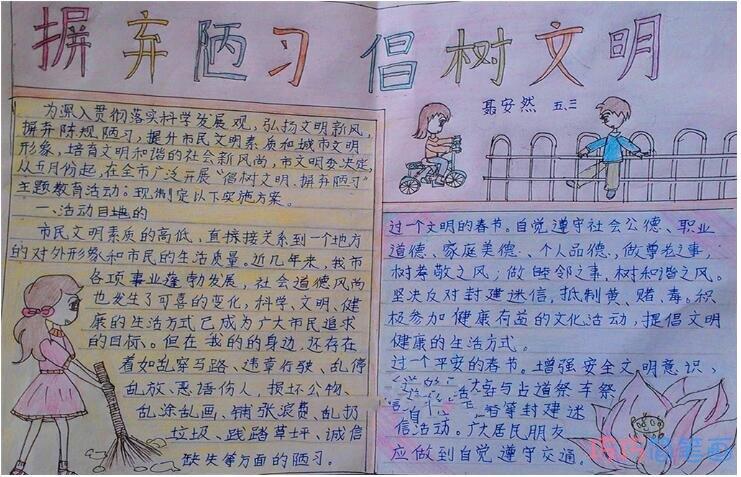 摒弃陋习 倡树文明
聂安然 五、三
为深入贯彻落实科学发展观，弘扬文明新风，
摒弃陈规陋习，提升市民文明素质和城市文明
形象，培育文明和谐的社会新风尚，市文明委决定，
从五月份起，在全市广泛开展“倡树文明、摒弃陋习”
主题教育活动。现制定以下实施方案。
一、活动目的
市民文明素质的高低、直接关系到一个地方
的对外形象和市民的生活质量。近几年来，我市
各项事业蓬勃发展，社会道德风尚
也发生了可喜的变化，科学、文明、健
康的生活方式已成为广大市民追求
的目标。但在我的的身边，还存在
着如乱穿马路、违章行驶、乱停
乱放、恶语伤人，损坏公物、
乱涂乱画、铺张浪费、乱扔
垃圾、践踏草坪、诚信
缺失等方面的陋习。
过一个文明的春节。自觉遵守社会公德、职业
道德、家庭美德、个人品德，做尊老之事，
树尊敬之风；做睦邻之事，树和谐之风。
坚决反对封建迷信，抵制黄、赌、毒。积
极参加健康有益的文化活动，提倡文明
健康的生活方式。
过一个平安的春节。增强安全文明意识、
与占道祭车祭
自 等封建迷
信活动。广大居民朋友
应做到自觉遵守交通。